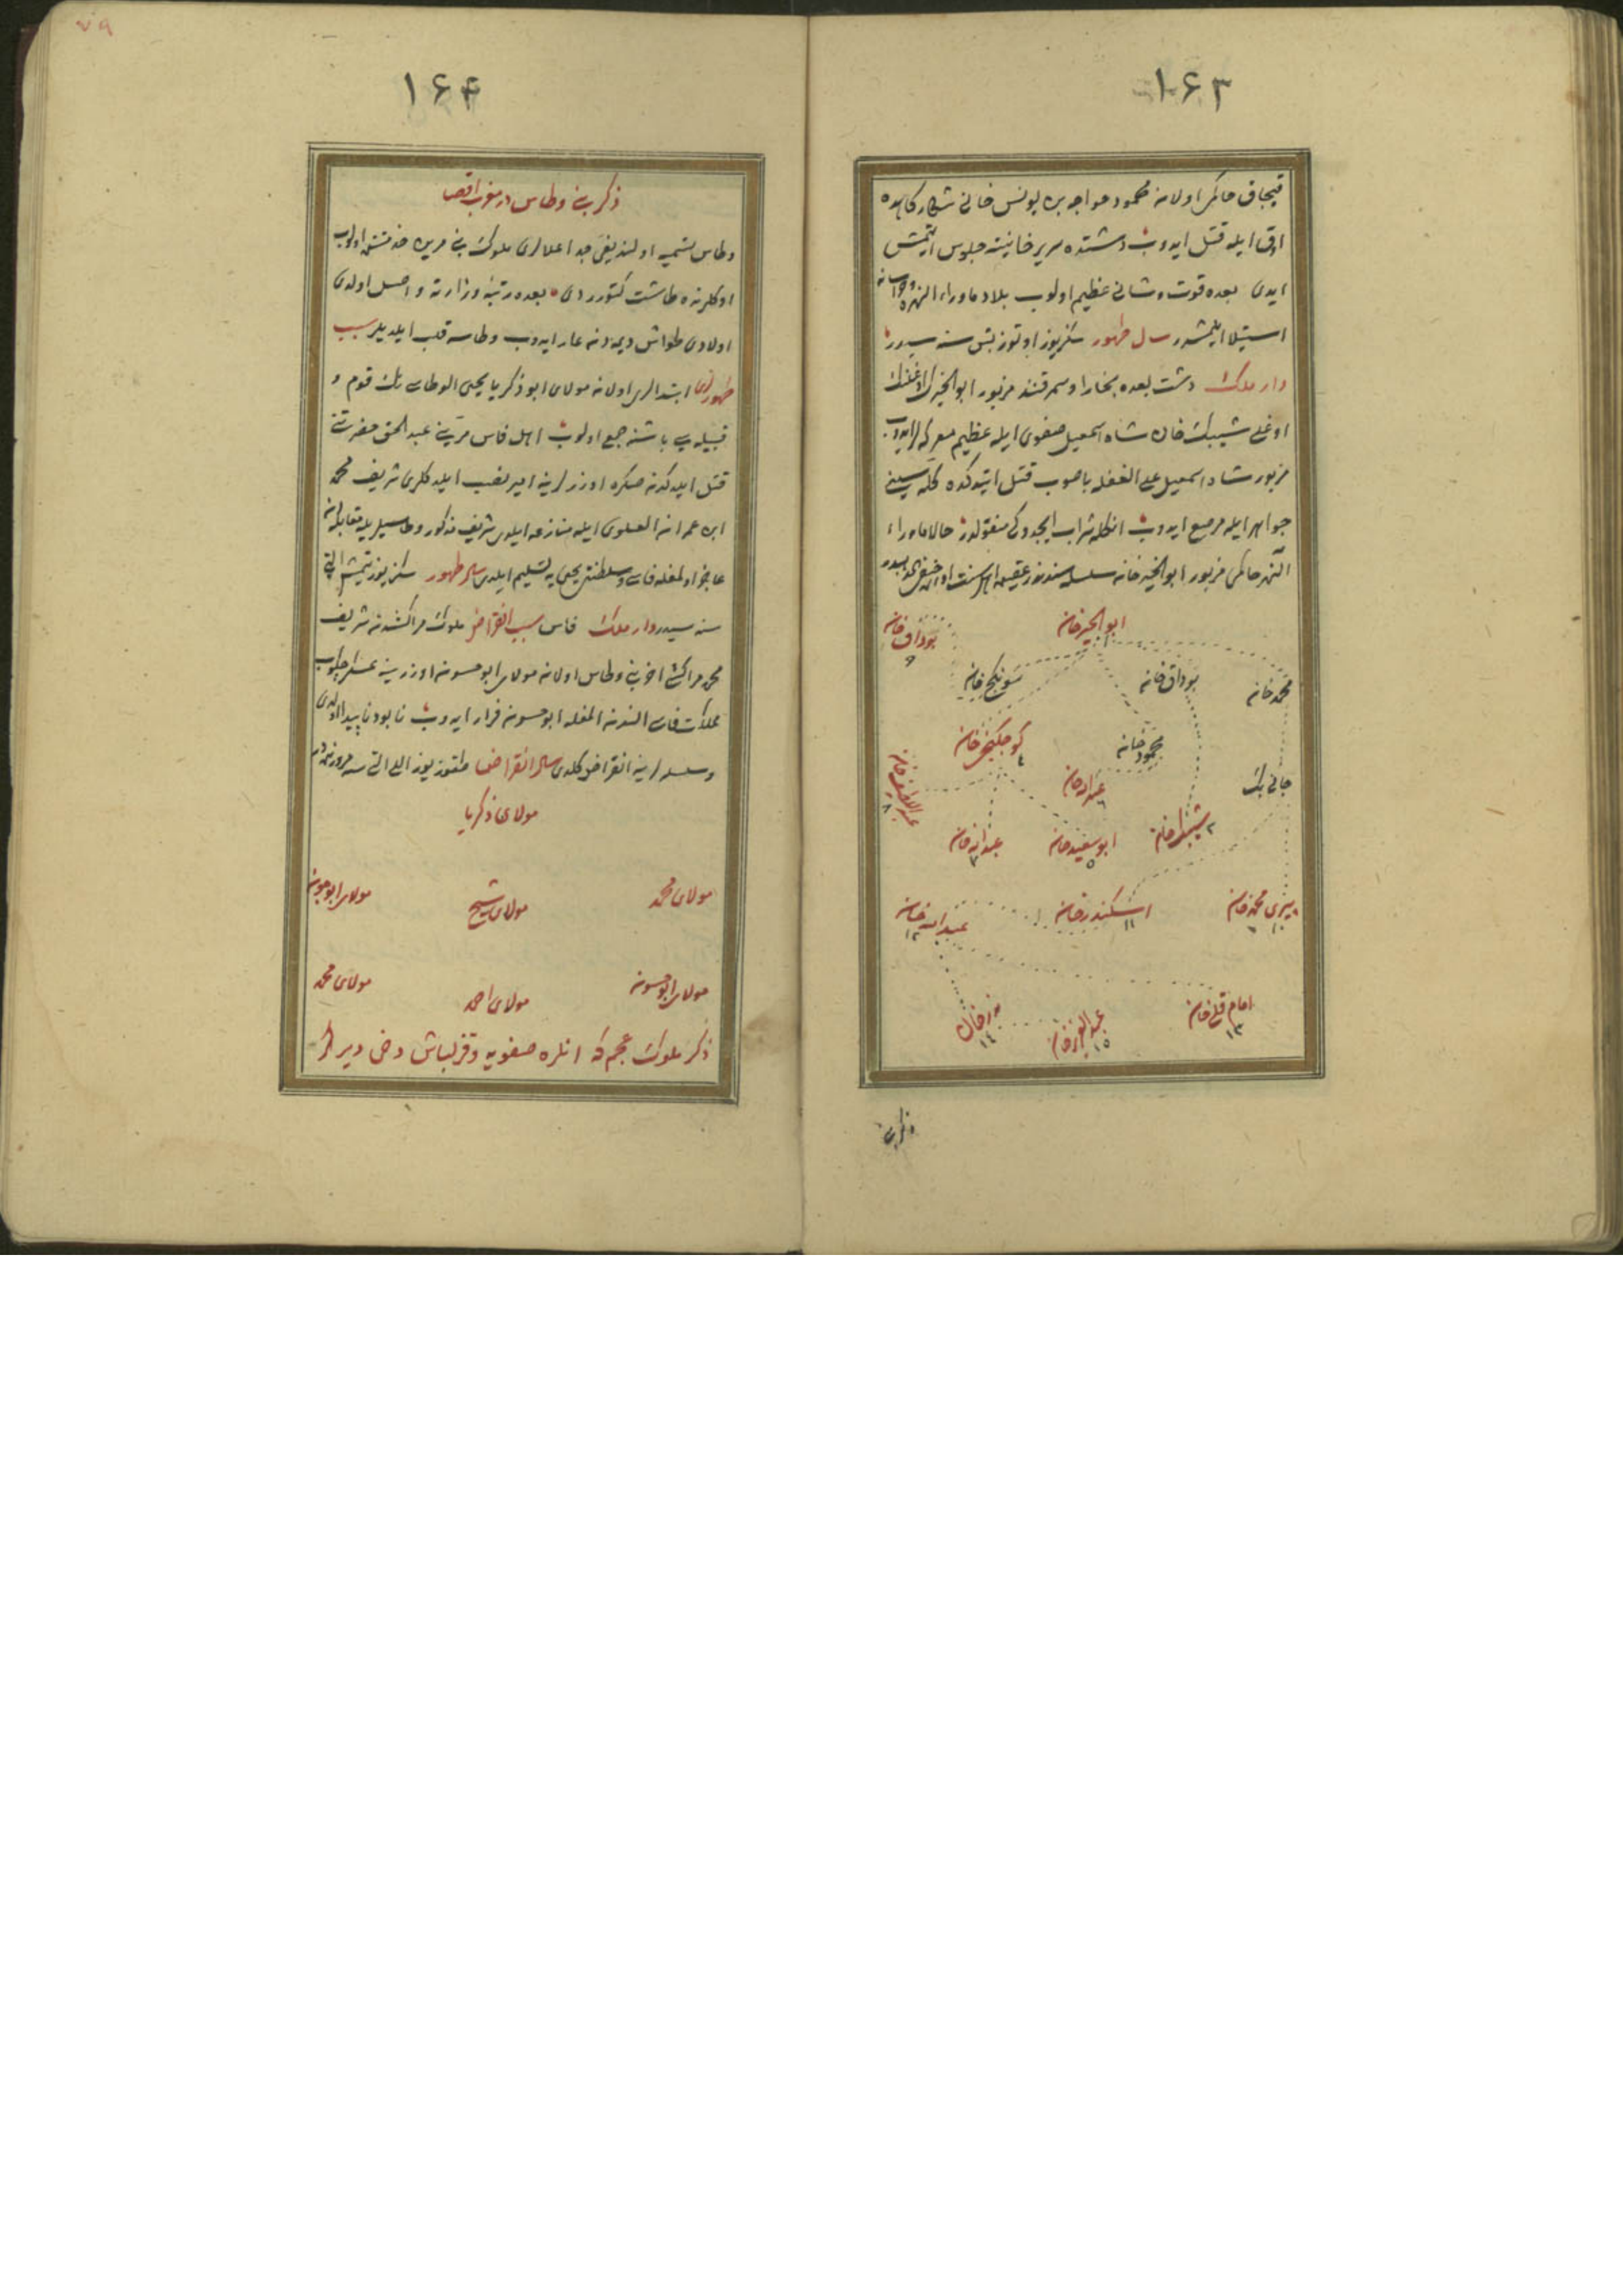 ١۶٣
قپچاق حاکمی اولان محمود خواجه بن یونس خانی شکارکاهده
اوق ایله قتل ایدوب دشتده سریر خانیته جلوس ایتمش
ایدی بعده قوت و شانی عظیم اولوب بلاد ماوراء النهره
استیلا ایلمشدر سال ظهور سکزیوز اوتوز بش سنه سیدر
دار ملک دشت بعده بخارا و سمرقند مزبور ابوالخیرک اوغلنک
اوغلی شیبک خان شاه اسمعیل صفوی ایله عظیم معرکه لر ایدوب
مزبور شاه اسمعیل علی الغفله باصوب قتل ایتدکده کله سینی
جواهر ایله مرصع ایدوب انکله شراب ایچردی منقولدر حالا ماوراء
النهر حاکمی مزبور ابوالخیر خان سلسله سندندر اهل سنت
ابو الخیر خان ١
بوداق خان ٩
محمد خان
بوداق خان
سونجک خان
کوچکنجی خان ٤
محمود خان
جانی بک
عبدالله خان ٦
عبداللطیف خان ٨
شیبک خان ٢
ابو سعید خان ٥
عبدالله خان ٣
پیری محمد خان ١٠
اسکندر خان ١١
عبدالله خان ١٢
امام قلی خان ١٣
عبدالعزیز خان ١٥
نذر خان ١٤
ذکر بنی
١۶۴
ذکر بنی وطاس در مغرب اقصا
وطاس تسمیه اولندیغی جد اعلالری ملوک بنی مرین خدمتنده اولوب
اوکلرنده طاشت کتوردی بعده رتبۀ وزارته واصل اولدی
اولادی طواش دیمه دن عار ایدوب وطاسه قلب ایلدیلر سبب
ظهوری ابتدالری اولان مولای ابو زکریا یحیی الوطاسی نک قوم و
قبیله سی باشنه جمع اولوب اهل فاس مرینی عبد الحق حضرتنی
قتل ایلدکدن صکره اوزرلرینه امیر نصب ایلدکلری شریف محمد
ابن عمران العلوی ایله منازعه ایلدی شریف مذکور وطاسیلر ایله مقابله دن
عاجز اولمغله فاس و سلطنتی یحیی یه تسلیم ایلدی سال ظهور سکزیوز یتمش التی
سنه سیدر دار ملک فاس سبب انقراض ملوک مراکشدن شریف
محمد مراکشی اخر بنی وطاس اولان مولای ابو حسون اوزرینه عسکر چکوب
مملکت فاسی الندن المغله ابو حسون فرار ایدوب نابود ناپیدا اولدی
و سلسله لرینه انقراض کلدی سال انقراض طقوز یوز اللی التی سنه
مولای زکریا
مولای محمد
مولای شیخ
مولای ابو حسون
مولای ابو حسون
مولای احمد
مولای محمد
ذکر ملوک عجم که انلره صفویه و قزلباش دخی دیرلر